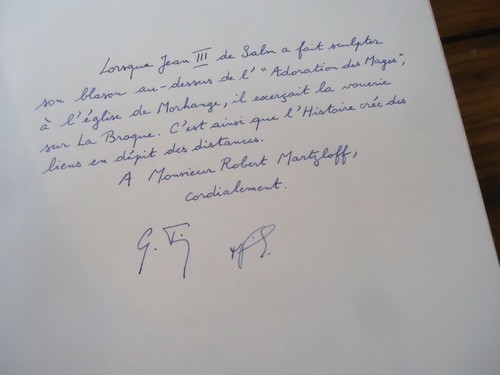 Lorsque Jean III de Salm a fait sculpter
son blason au-dessus de l'"Adoration des Mages",
à l'église de Morhange, il exerçait la vouerie
sur La Broque. C'est ainsi que l'Histoire crée des
liens en dépit des distances.
A Monsieur Robert Martzloff,
cordialement.